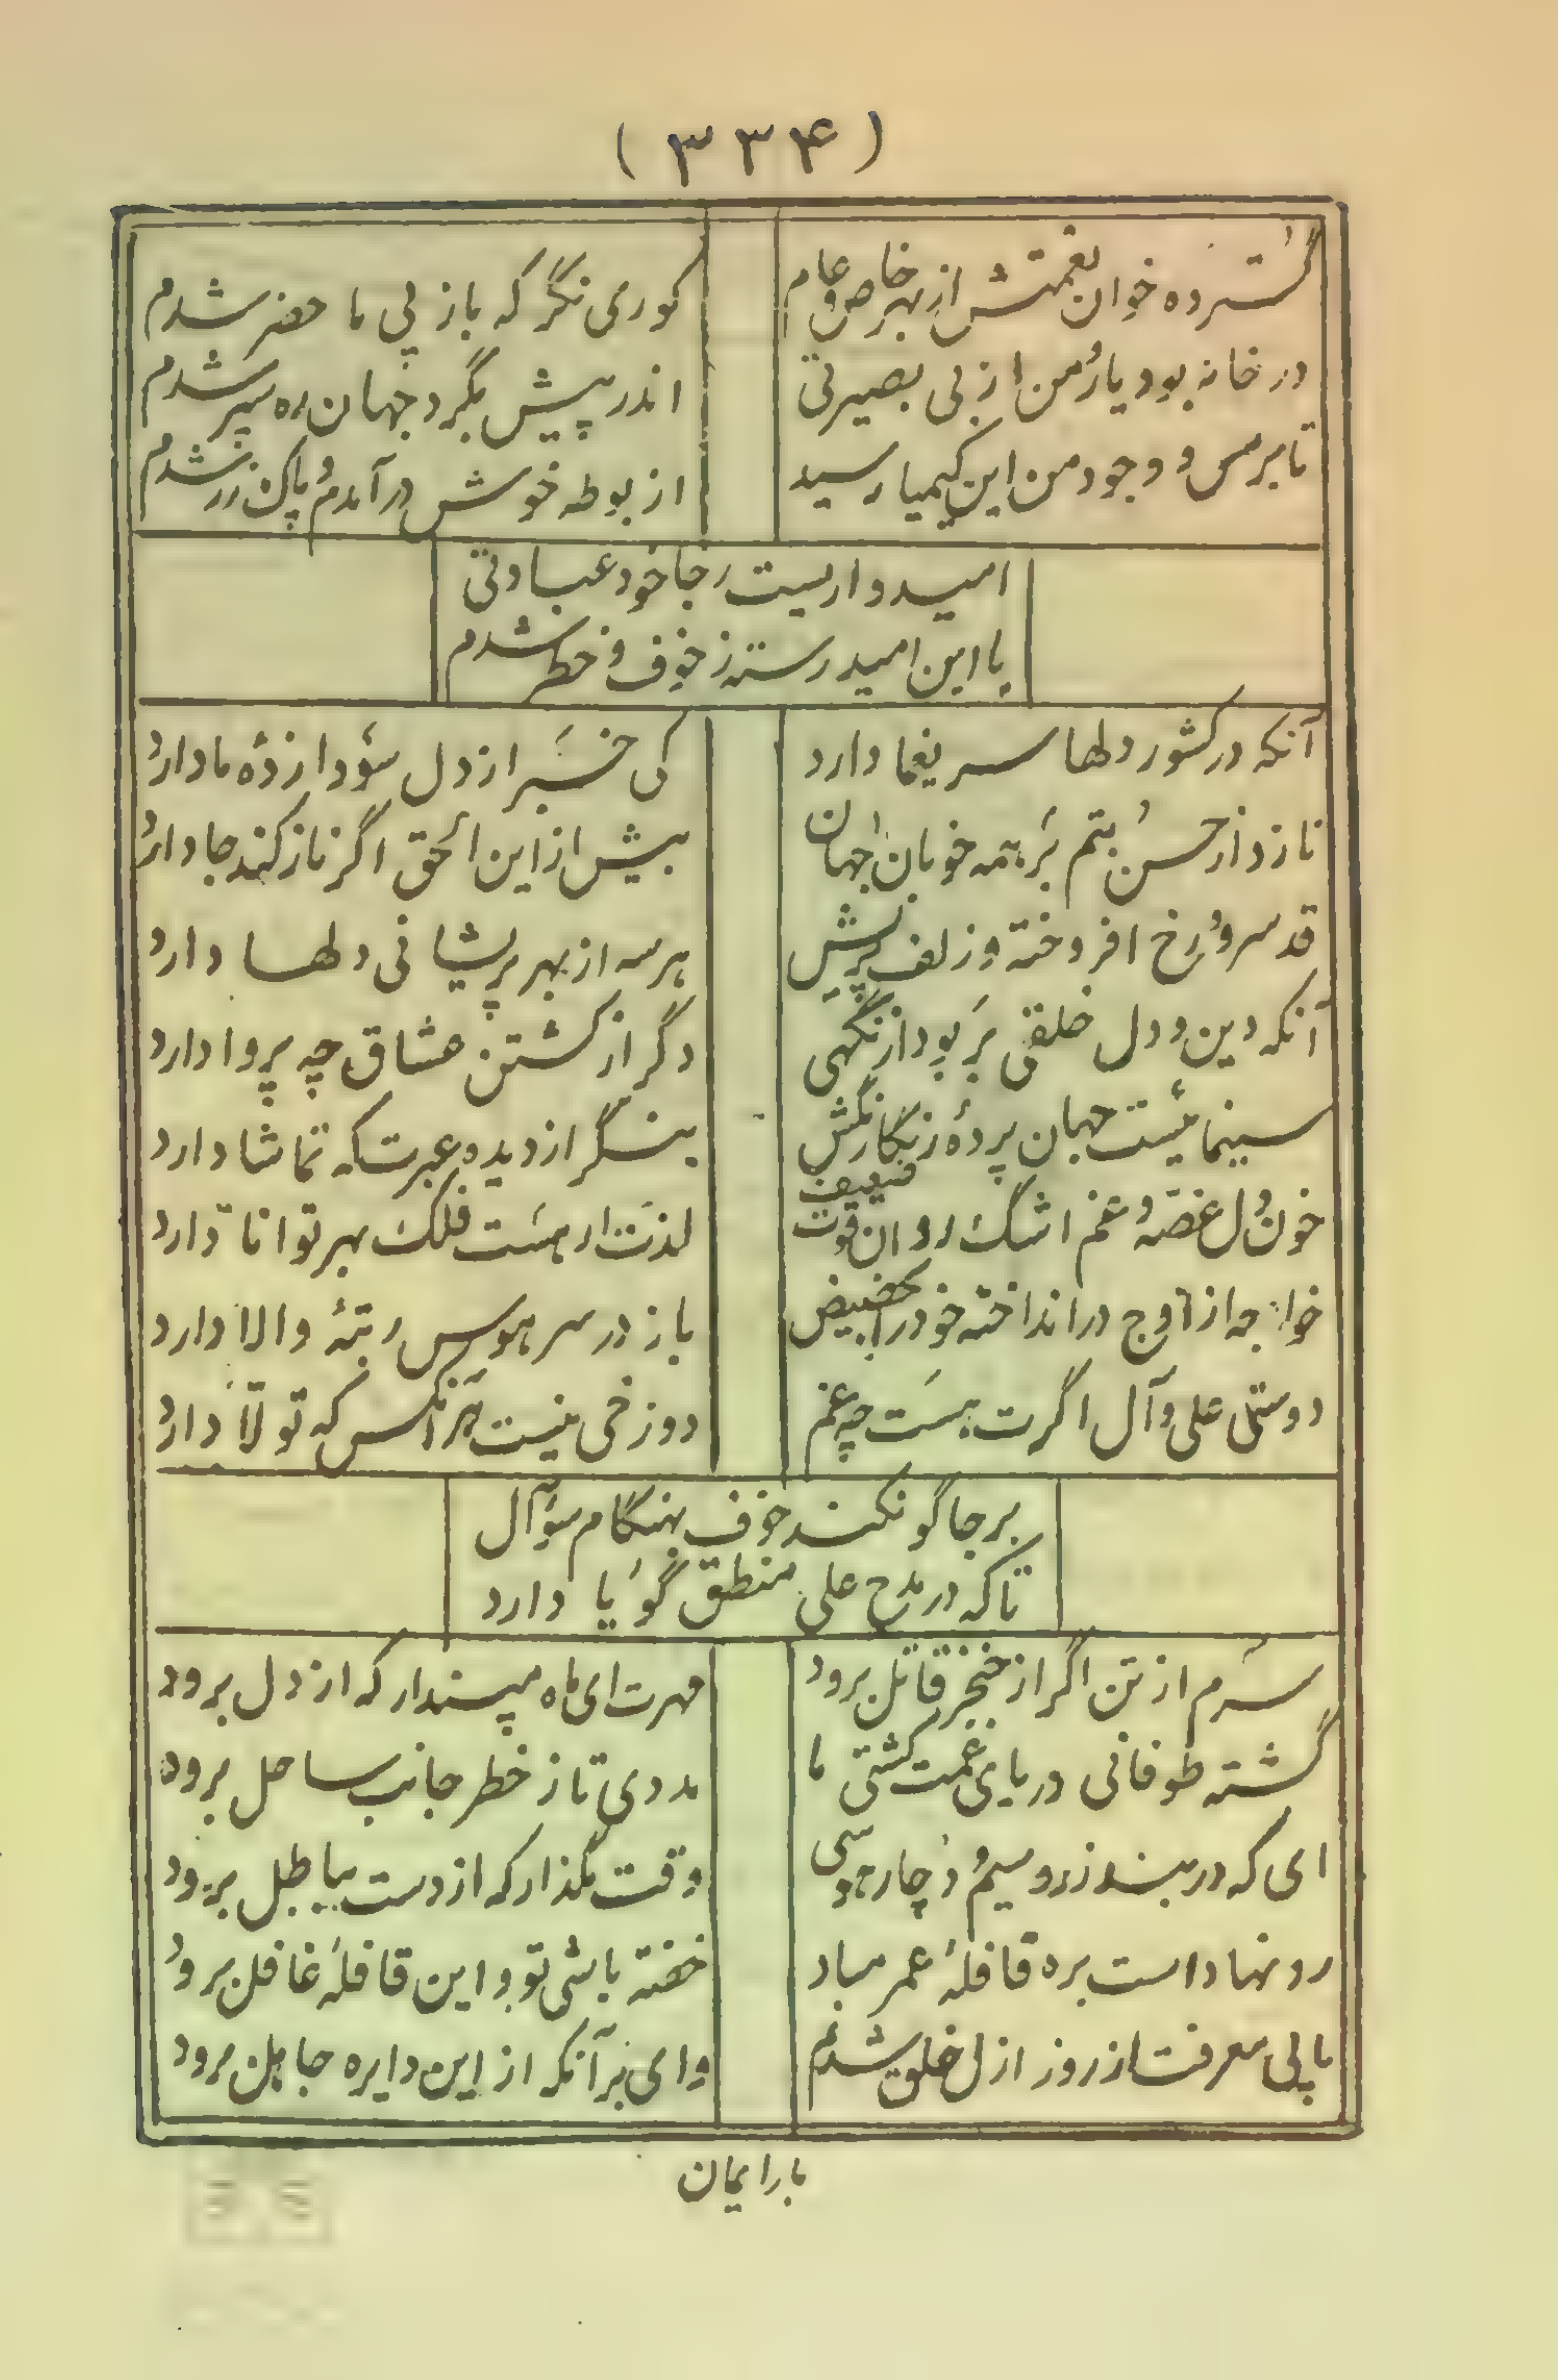 (۳۳۴)
گسترده خوان نعمتش از بهر خاص و عام
کوری نگر که باز پی ما حضر شدم
در خانه بود یار و من از بی بصیرتی
اندر پیش بگرد جهان ره سپر شدم
تا بر مس وجود من این کیمیا رسید
از بوطه خوش در آمدم و پاک زر شدم
امیدواریست رجا خود عبادتی
با این امید رسته ز خوف و خطر شدم
آنکه در کشور دلها سر یغما دارد
کی خبر از دل سودا زدهٔ ما دارد
نازد از حسن بتم بر همه خوبان جهان
بیش از این الحق اگر ناز کند جا دارد
قد سرو و رخ افروخته و زلف پریش
هر سه از بهر پریشانی دلها دارد
آنکه دین و دل خلقی بربود از نگهی
دگر از کشتن عشاق چه پروا دارد
سینمائیست جهان پردهٔ زنگار نگش
بنگر از دیده عبرت که تماشا دارد
خون دل غصه و غم اشک روان قوت ضعیف
لذت ار هست فلک بهر توانا دارد
خواجه از اوج در انداخته خود را بحضیض
باز در سر هوس رتبهٔ والا دارد
دوستی علی و آل اگرت هست چه غم
دوزخی نیست هر آنکس که تولا دارد
بر جا گو نکند خوف بهنگام سؤال
تا که در مدح علی منطق گویا دارد
سرم از تن اگر از خنجر قاتل برود
مهرت ای ماه مپندار که از دل برود
گشته طوفانی دریای غمت کشتی ما
مددی تا ز خطر جانب ساحل برود
ای که در بند زر و سیم و دچار هوسی
وقت مگذار که از دست بباطل برود
رو نهاد است بره قافلهٔ عمر مباد
خفته باشی تو و این قافله غافل برود
ما پی معرفت از روز ازل خلق شدیم
وای بر آنکه از این دایره جاهل برود
بار ایمان